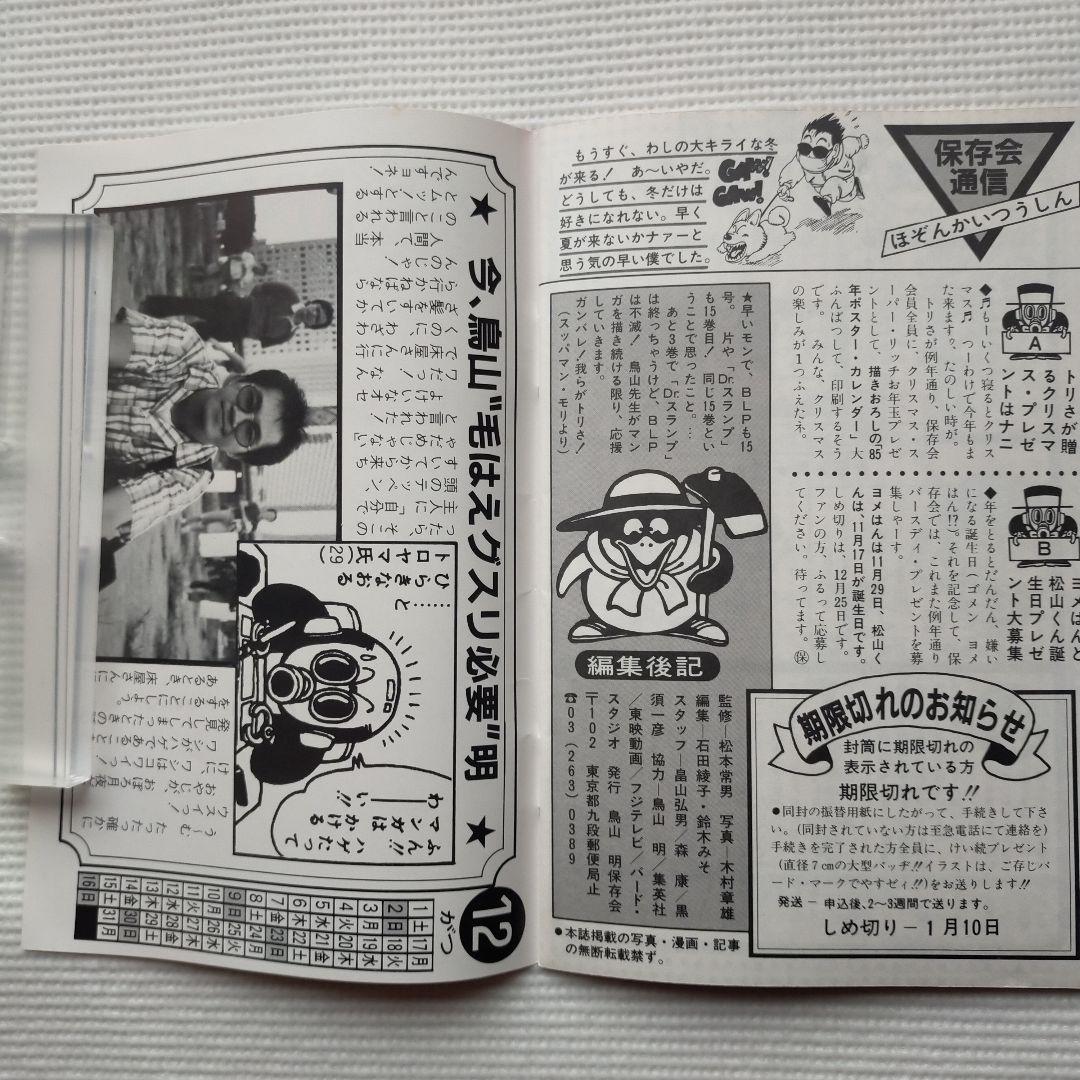 ★今、鳥山“毛はえグスリ必要”明★
うーむ、たった確かに
ウスイっ！
おやじが、おぼろ月夜
けに、ワシはコワイっ！
ワシがハゲであること
発見てしまったときの
をすることにしよう。
あるとき、床屋さんに
ったら、そこの
主人に「自分で
頭のテッペン
すいてから来ち
ゃだめじゃない
と言われた！
よけいなオセ
ワだっ！なん
で床屋さんに行
くのに、わざわ
ざ髪をすいてか
ら行かねばなら
んのじゃ！
人間て、本当
のこと言われる
とムッ！とする
んですヨネ！
ふん!!ハゲたって
マンガはかける
わーーい!!
……と
ひらきなおる
トロヤマ氏(29)
12
がつ
1土 17月
2日 18火
3月 19水
4火 20木
5水 21金
6木 22土
7金 23日
8土 24月
9日 25火
10月 26水
11火 27木
12水 28金
13木 29土
14金 30日
15土 31月
16日
保存会
通信
ほぞんかいつうしん
もうすぐ、わしの大キライな冬
が来る！　あ〜いやだ。
どうしても、冬だけは
好きになれない。早く
夏が来ないかナァーと
思う気の早い僕でした。
GAW!
GAW!
A
トリさが贈
るクリスマ
ス・プレゼ
ントはナニ
◆♬もーいくつ寝るとクリス
マス♬　つーわけで今年もま
た来ます？、たのしい時が。
トリさが例年通り、保存会
会員全員に、クリスマス・ス
ーパー・リッチお年玉プレゼ
ントとして、描きおろしの85
年ポスター・カレンダー」大
ふんぱつして、印刷するそう
です。　みんな、クリスマス
の楽しみが1つふえたネ。
B
ヨメはんと
松山くん誕
生日プレゼ
ント大募集
◆年をとるとだんだん、嫌い
になる誕生日（ゴメン　ヨメ
はん!?）。それを記念して、保
存会では、これまた例年通り
バースディ・プレゼントを募
集しゃーす。
ヨメはんは11月29日、松山く
んは、11月17日が誕生日です。
しめ切りは、12月25日です。
ファンの方、ふるって応募し
てください。待ってます。㋭
★早いモンで、BLPも15
号。片や「Dr.スランプ」
も15巻目！　同じ15巻とい
うことで思ったこと。…
あと3巻で「Dr.スランプ」
は終っちゃうけど、BLP
は不滅！　鳥山先生がマン
ガを描き続ける限り、応援
していきます。
ガンバレ！我らがトリさ！
（スッパマン・モリより）
編集後記
監修―松本常男　写真　木村章雄
編集―石田綾子・鈴木みそ
スタッフ―畠山弘男／森　康／黒
須一彦　協力―鳥山　明／集英社
／東映動画／フジテレビ／バード・
スタジオ　発行　鳥山　明保存会
〒102　東京都九段郵便局止
☎03（263）0389
●本誌掲載の写真・漫画・記事
の無断転載禁ず。
期限切れのお知らせ
封筒に期限切れの
表示されている方
期限切れです!!
●同封の振替用紙にしたがって、手続きして下さ
い。(同封されていない方は至急電話にて連絡を)
手続きを完了された方全員に、けい続プレゼント
(直径7cmの大型バッヂ!!イラストは、ご存じバ
ード・マークでやすゼィ!!)をお送りします!!
発送－申込後、2〜3週間で送ります。
しめ切り－1月10日